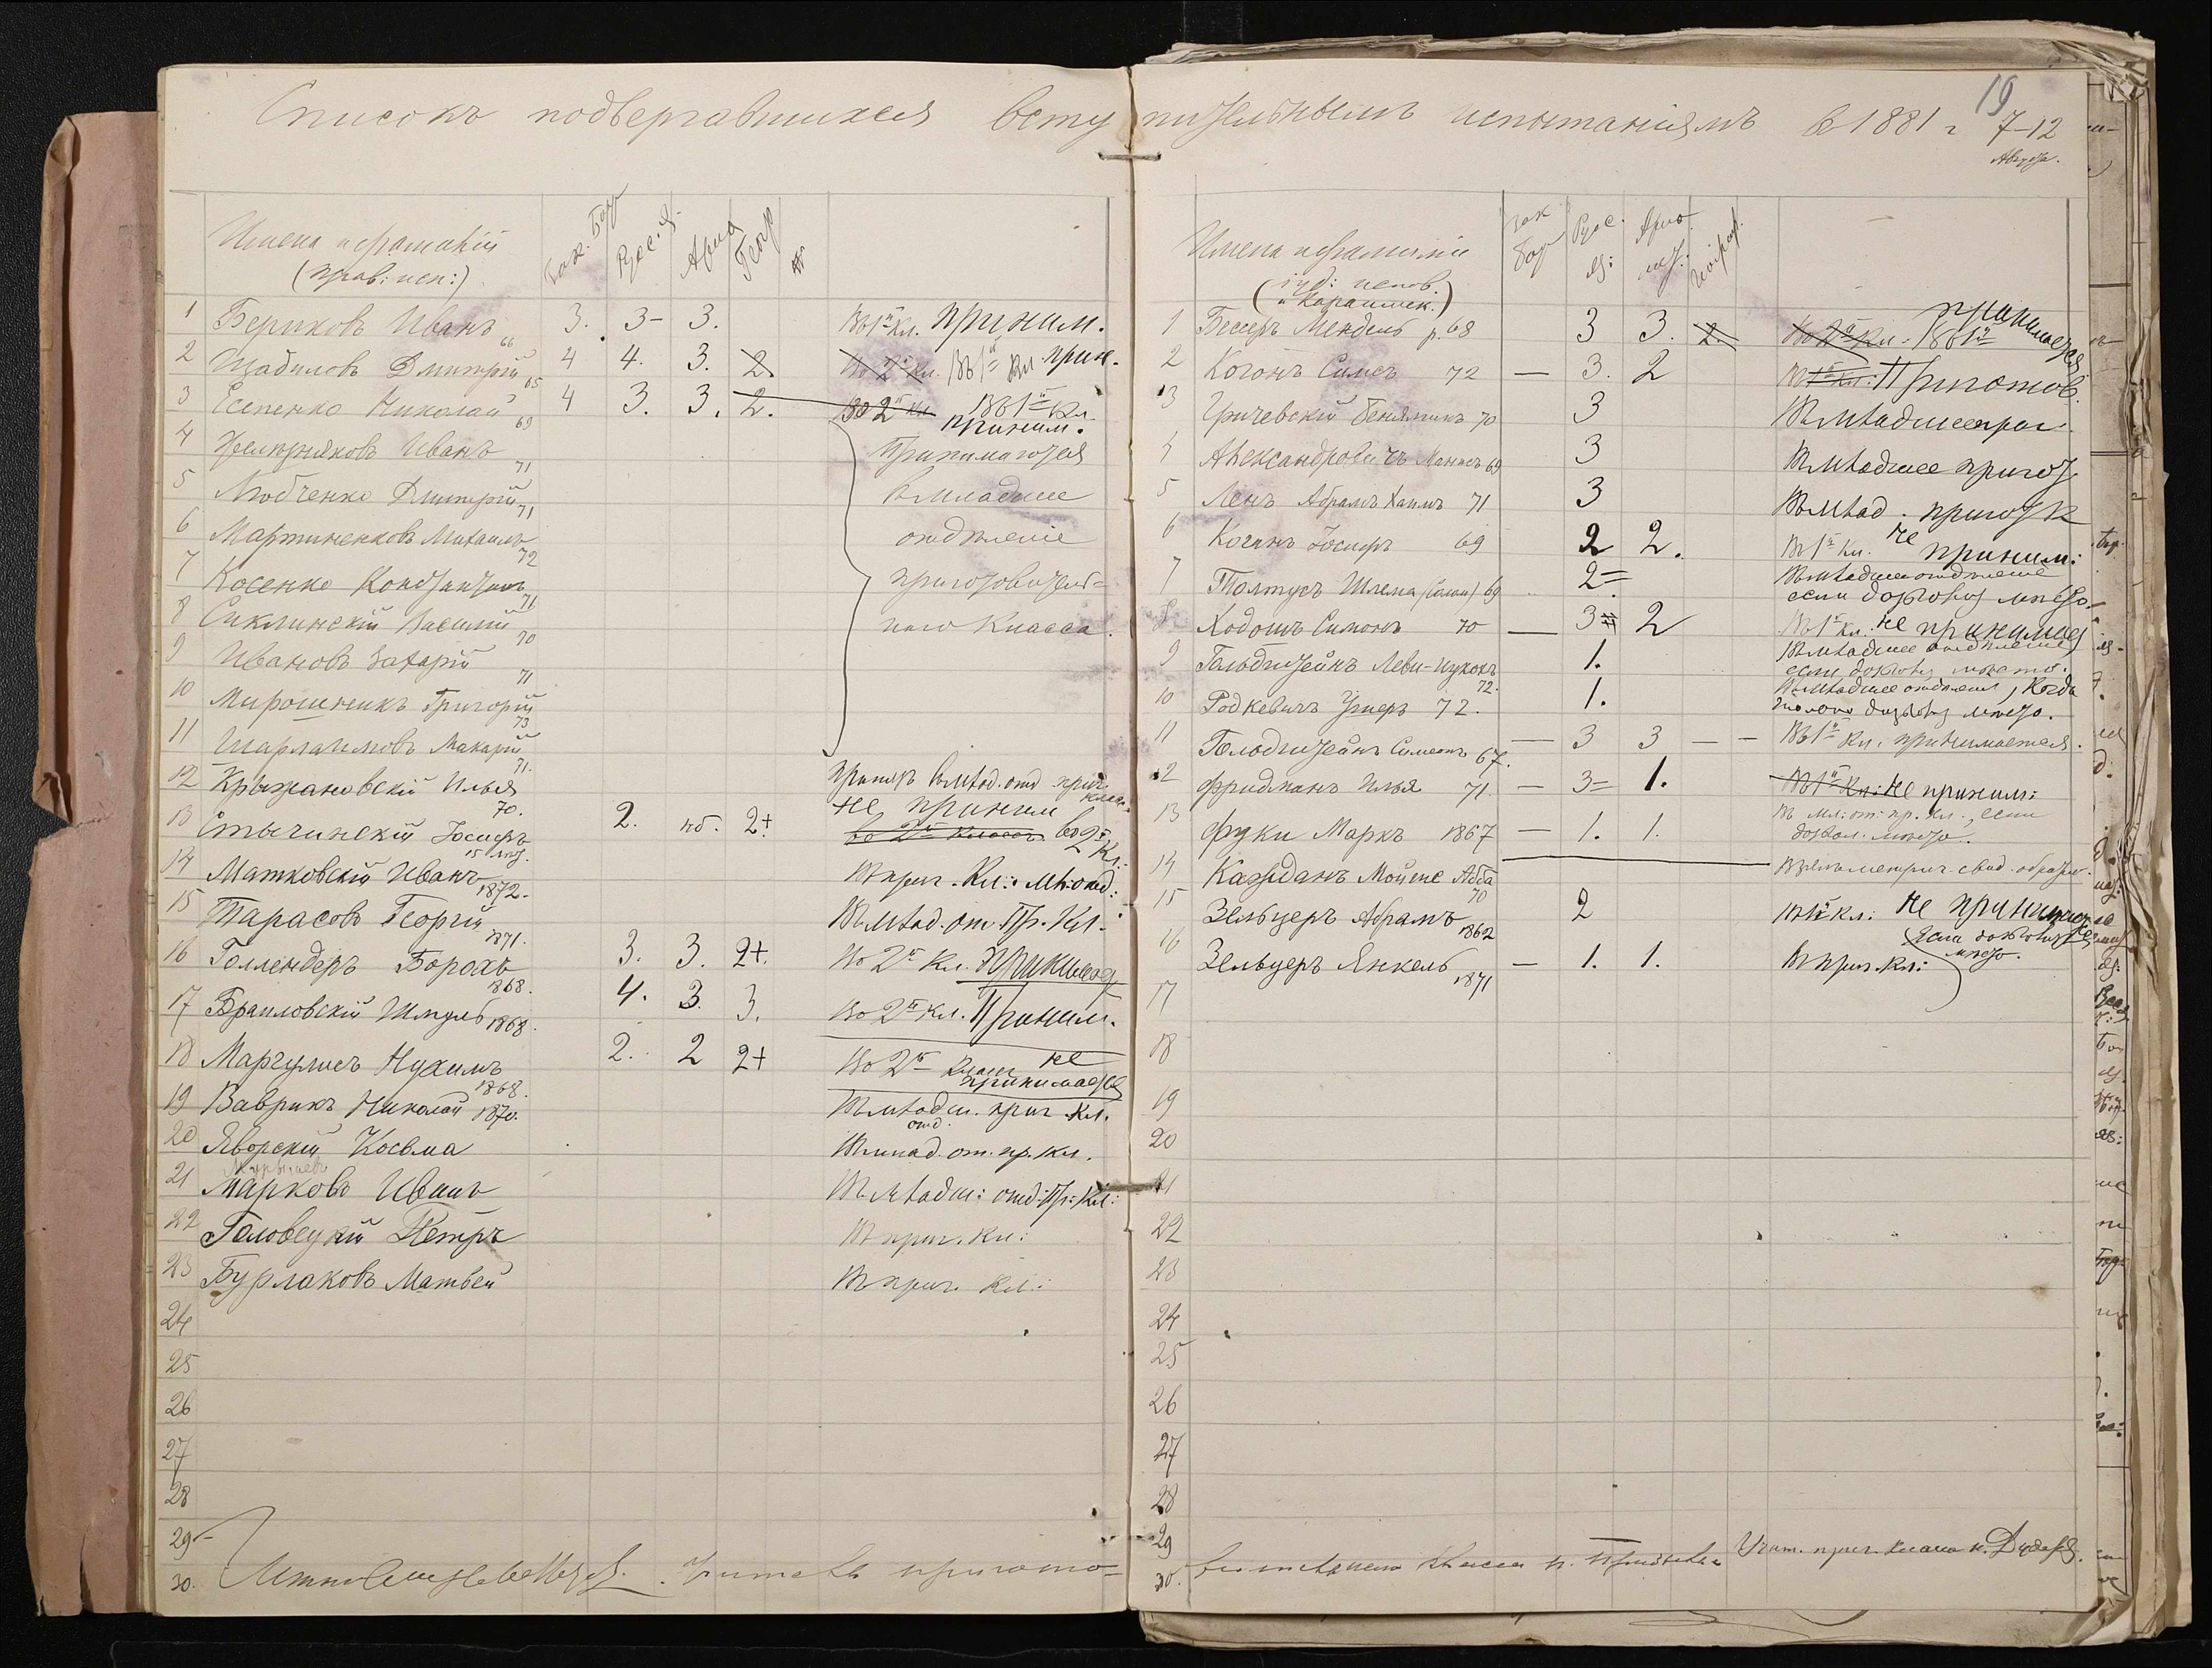 Списокъ подвергавшихся вступительнымъ испытаніямъ в 1881 г 7-12
Августа.
19
Имена и фамиліи
(прав: исп:)
Зак. Бож Рус. Я. Арид Геогр
1 Бериковъ Иванъ 66 3. 3- 3. Въ 1й Кл. приним.
2 Шабиловъ Дмитрій 65 4 4. 3. 2. Во 2й Кл. Въ 1й Кл прин.
3 Есепенко Николай 69 4 3. 3. 2. Во 2й Кл Въ 1й Кл.
приним.
4 Иванъ 71 Принимаются
5 Любченко Дмитрій 71 въ младшее
6 Мартиненковъ Михаилъ 72 отдѣленіе
7 Косенко Константинъ 71 приготовитель=
8 Сиклинскій Василій 70 наго Класса.
9 Ивановъ Захарій 71
10 Мирошникъ Григорій 73
11 Шарлаимовъ Макарій 71.
12 Крыжановскій Илья 70. принятъ въ млад. отд приг.
класс.
13 Стычинскій Іосифъ 2. нб. 2+ не приним
во 2й Классъ во 2й Кл.
14 Матковскій Иванъ 1872. Въ приг. Кл: мл: отд:
15 Тарасовъ Георгій 1871. Въ млад. от. Пр. Кл.
16 Голлендеръ Борохъ 1868. 3. 3. 2+. Во 2й Кл. принимает
17 Браиловскій Шмуль 1868. 4. 3. 3. Во 2й Кл. Приним.
18 Маргулисъ Нухимъ 1868. 2. 2 2+ Во 2й Классъ не
принимается
19 Ваврикъ Николай 1870. Въ младш. приг. Кл.
отд.
20 Яворскій Косьма Въ млад. от. пр. кл.
21 Марковъ Иванъ Въ младш: отд: Пр: Кл:
22 Головецкій Петръ Въ приг. Кл:
23 Бурлаковъ Матвей Въ приг. Кл:
24
25
26
27
28
29
30. Учитель пригото=
Имена и фамиліи
(іуд: испов.
и Караимск.)
Зак Бож Рус. яз: Арив мет. Геогр.
1 Бесеръ Мендель р. 68 3 3. 2. Во 2й Кл. Въ 1й принимается
2 Когонъ Симсъ 72 — 3. 2 Въ 1й Кл: Приготов.
3 Гричевскій Беняминъ 70 3 Въ младшее приг.
4 Александровичъ 69 3 Въ младшее пригот
5 Ленъ Абрамъ Хаимъ 71 3 Въ млад. пригот К
6 Коганъ Іосифъ 69 2 2. Въ 1й Кл. не приним:
7 Толтусъ Шлема 69 2= Въ младшее отдѣленіе
если дозволит мѣсто
8 Ходошъ Симонъ 70 — 3= 2 Въ 1й Кл. не принимает
9 Гольдштейнъ Леви-Нухонъ 72. 1. Въ младшее отдѣленіе,
если дозволит мѣсто.
10 Родкевичъ Ушеръ 72. 1. Въ младшее отдѣленіе, Когда
только дозволит мѣсто.
11 Гольдштейнъ Симеонъ 67. — 3 3 — - Въ 1й Кл. принимается.
12 Фридманъ Илья 71. — 3= 1. Въ 1й Кл: Не приним:
13 Фуки Маркъ 1867 — 1. 1. Въ мл: от: пр. кл., если
дозвол. мѣсто.
14 Кажданъ Мойше Абба 70 метрич. свид. обратно.
15 Зельцеръ Абрамъ 1862 2 Въ 1й Кл: Не принимается
16 Зельцеръ Янкель 1871 — 1. 1. Въ приг. Кл: если дозволит
мѣсто.
17
18
19
20
21
22
23
24
25
26
27
28
29
30. вительнаго класса Учит. приг. класса